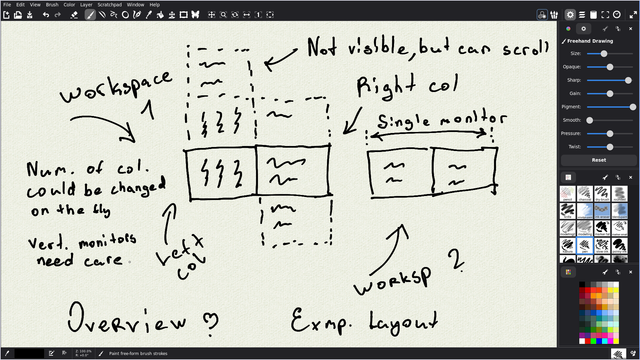 File Edit View Layer Brush Color Scratchpad Window Help
Freehand Drawing
Size:
Opaque:
Sharp:
Gain:
Pigment:
Smooth:
Pressure:
Twist:
Reset
Not visible, but can scroll
Workspace 1
Right col
Single monitor
Num. of col.
could be changed
on the fly
Vert. monitors
need care.
Left
col
Worksp 2
Overview
Exmp. Layout
Paint free-form brush strokes